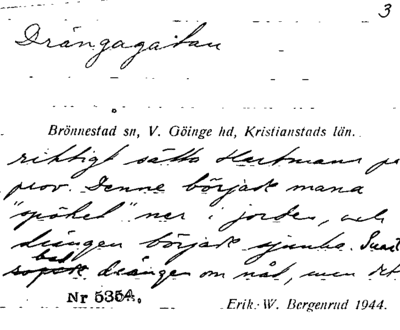 3
Drängagatan
Brönnestad sn, V. Göinge hd, Kristianstads län.
riktigt sätta Hartmans på
prov. Denne började mana
"spöket" ner i jorden, och
drängen började sjunka. Snart
bad
drängen om nåd, men det
Nr 5354.
Erik W. Bergenrud 1944.